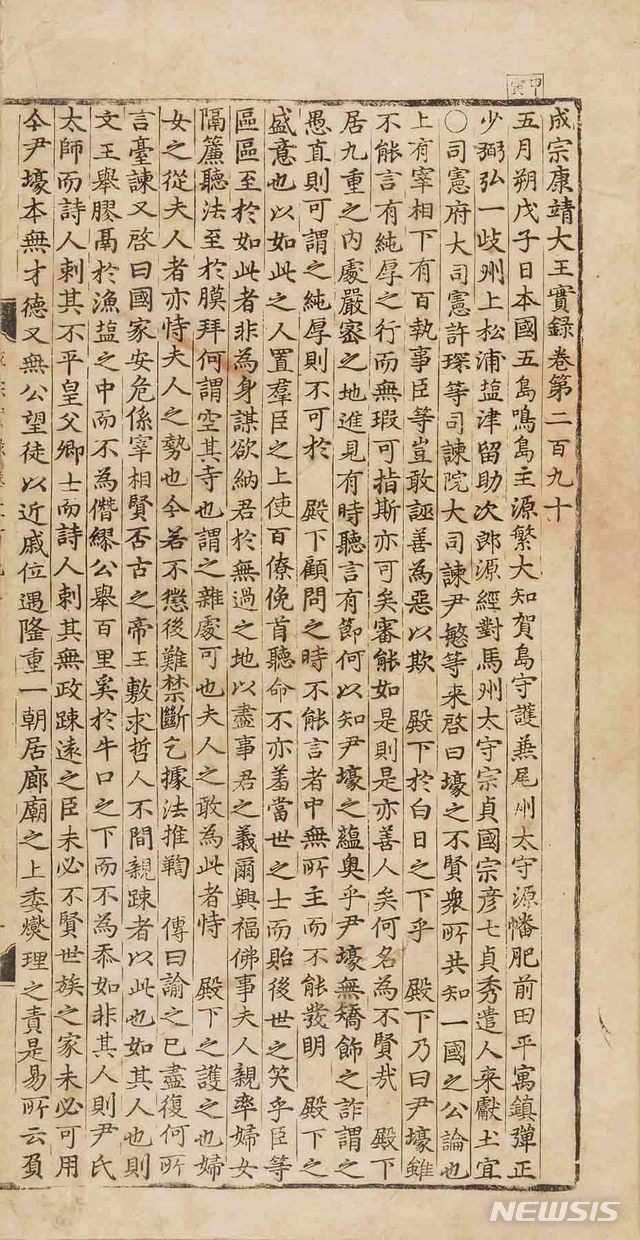 甲寅
成宗康靖大王實錄卷第二百九十
五月朔戊子日本國五島鳴島主源繁大知賀島守護兼尾州太守源幡肥前田平寓鎮彈正
少弼弘一歧州上松浦塩津留助次郎源經對馬州太守宗貞國宗彥七貞秀遣人來獻土宜
○司憲府大司憲許琛等司諫院大司諫尹慜等來啓曰壕之不賢衆所共知一國之公論也
上有宰相下有百執事臣等豈敢誣善爲惡以欺 殿下於白日之下乎 殿下乃曰尹壕雖
不能言有純厚之行而無瑕可指斯亦可矣審能如是則是亦善人矣何名爲不賢哉 殿下
居九重之內處嚴密之地進見有時聽言有節何以知尹壕之蘊奧乎尹壕無矯飾之詐謂之
愚直則可謂之純厚則不可於 殿下顧問之時不能言者中無所主而不能發明 殿下之
盛意也以如此之人置羣臣之上使百僚俛首聽命不亦羞當世之士而貽後世之笑乎臣等
區區至於如此者非爲身謀欲納君於無過之地以盡事君之義爾興福佛事夫人親率婦女
隔簾聽法至於膜拜何謂空其寺也謂之雜處可也夫人之敢爲此者恃 殿下之護之也婦
女之從夫人者亦恃夫人之勢也今若不懲後難禁斷乞據法推鞫 傳曰諭之已盡復何所
言臺諫又啓曰國家安危係宰相賢否古之帝王敷求哲人不間親踈者以此也如其人也則
文王舉膠鬲於漁塩之中而不爲僭繆公舉百里奚於牛口之下而不爲忝如非其人則尹氏
太師而詩人刺其不平皇父卿士而詩人刺其無政踈遠之臣未必不賢世族之家未必可用
今尹壕本無才德又無公望徒以近戚位遇隆重一朝居廊廟之上忝燮理之責是易所云負
NEWSIS